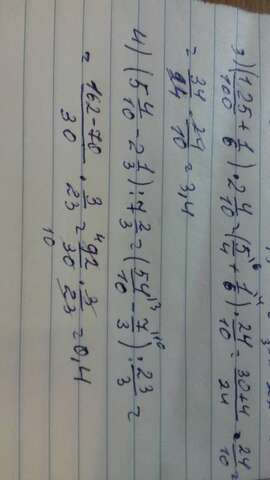 3) (1 25/100 + 1/6) · 2 4/10 = (5/4 + 1/6) · 24/10 = 30+4/24 = 24/10 =
= 34/24 · 24/10 = 3,4
4) (5 4/10 - 2 1/3) : 7 2/3 = (54/10 - 7/3) : 23/3 =
= 162-70/30 · 3/23 = 92/30 · 3/23 = 0,4